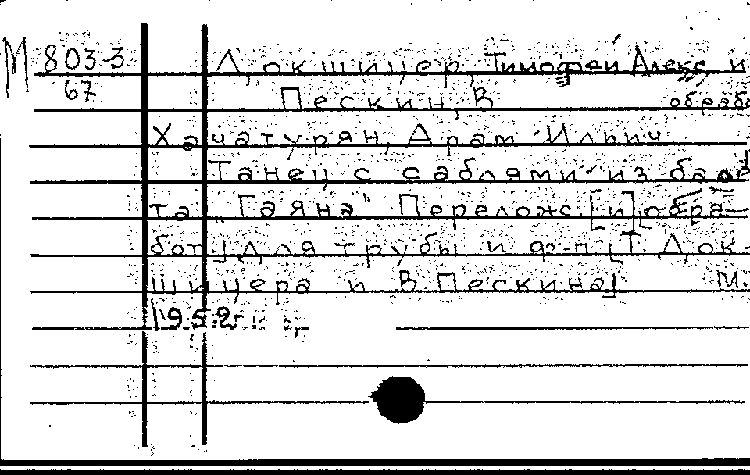 М 803-3
67
Докшицер, Тимофей Алекс. и
Пескин, В обраб
Хачатурян, Арам Ильич
Танец с саблями из бале
та "Гаянэ" Перелож. [и] обра-
бот.] для трубы и ф-п. [Т. Док
шицера и В. Пескина]. М.
1952г.